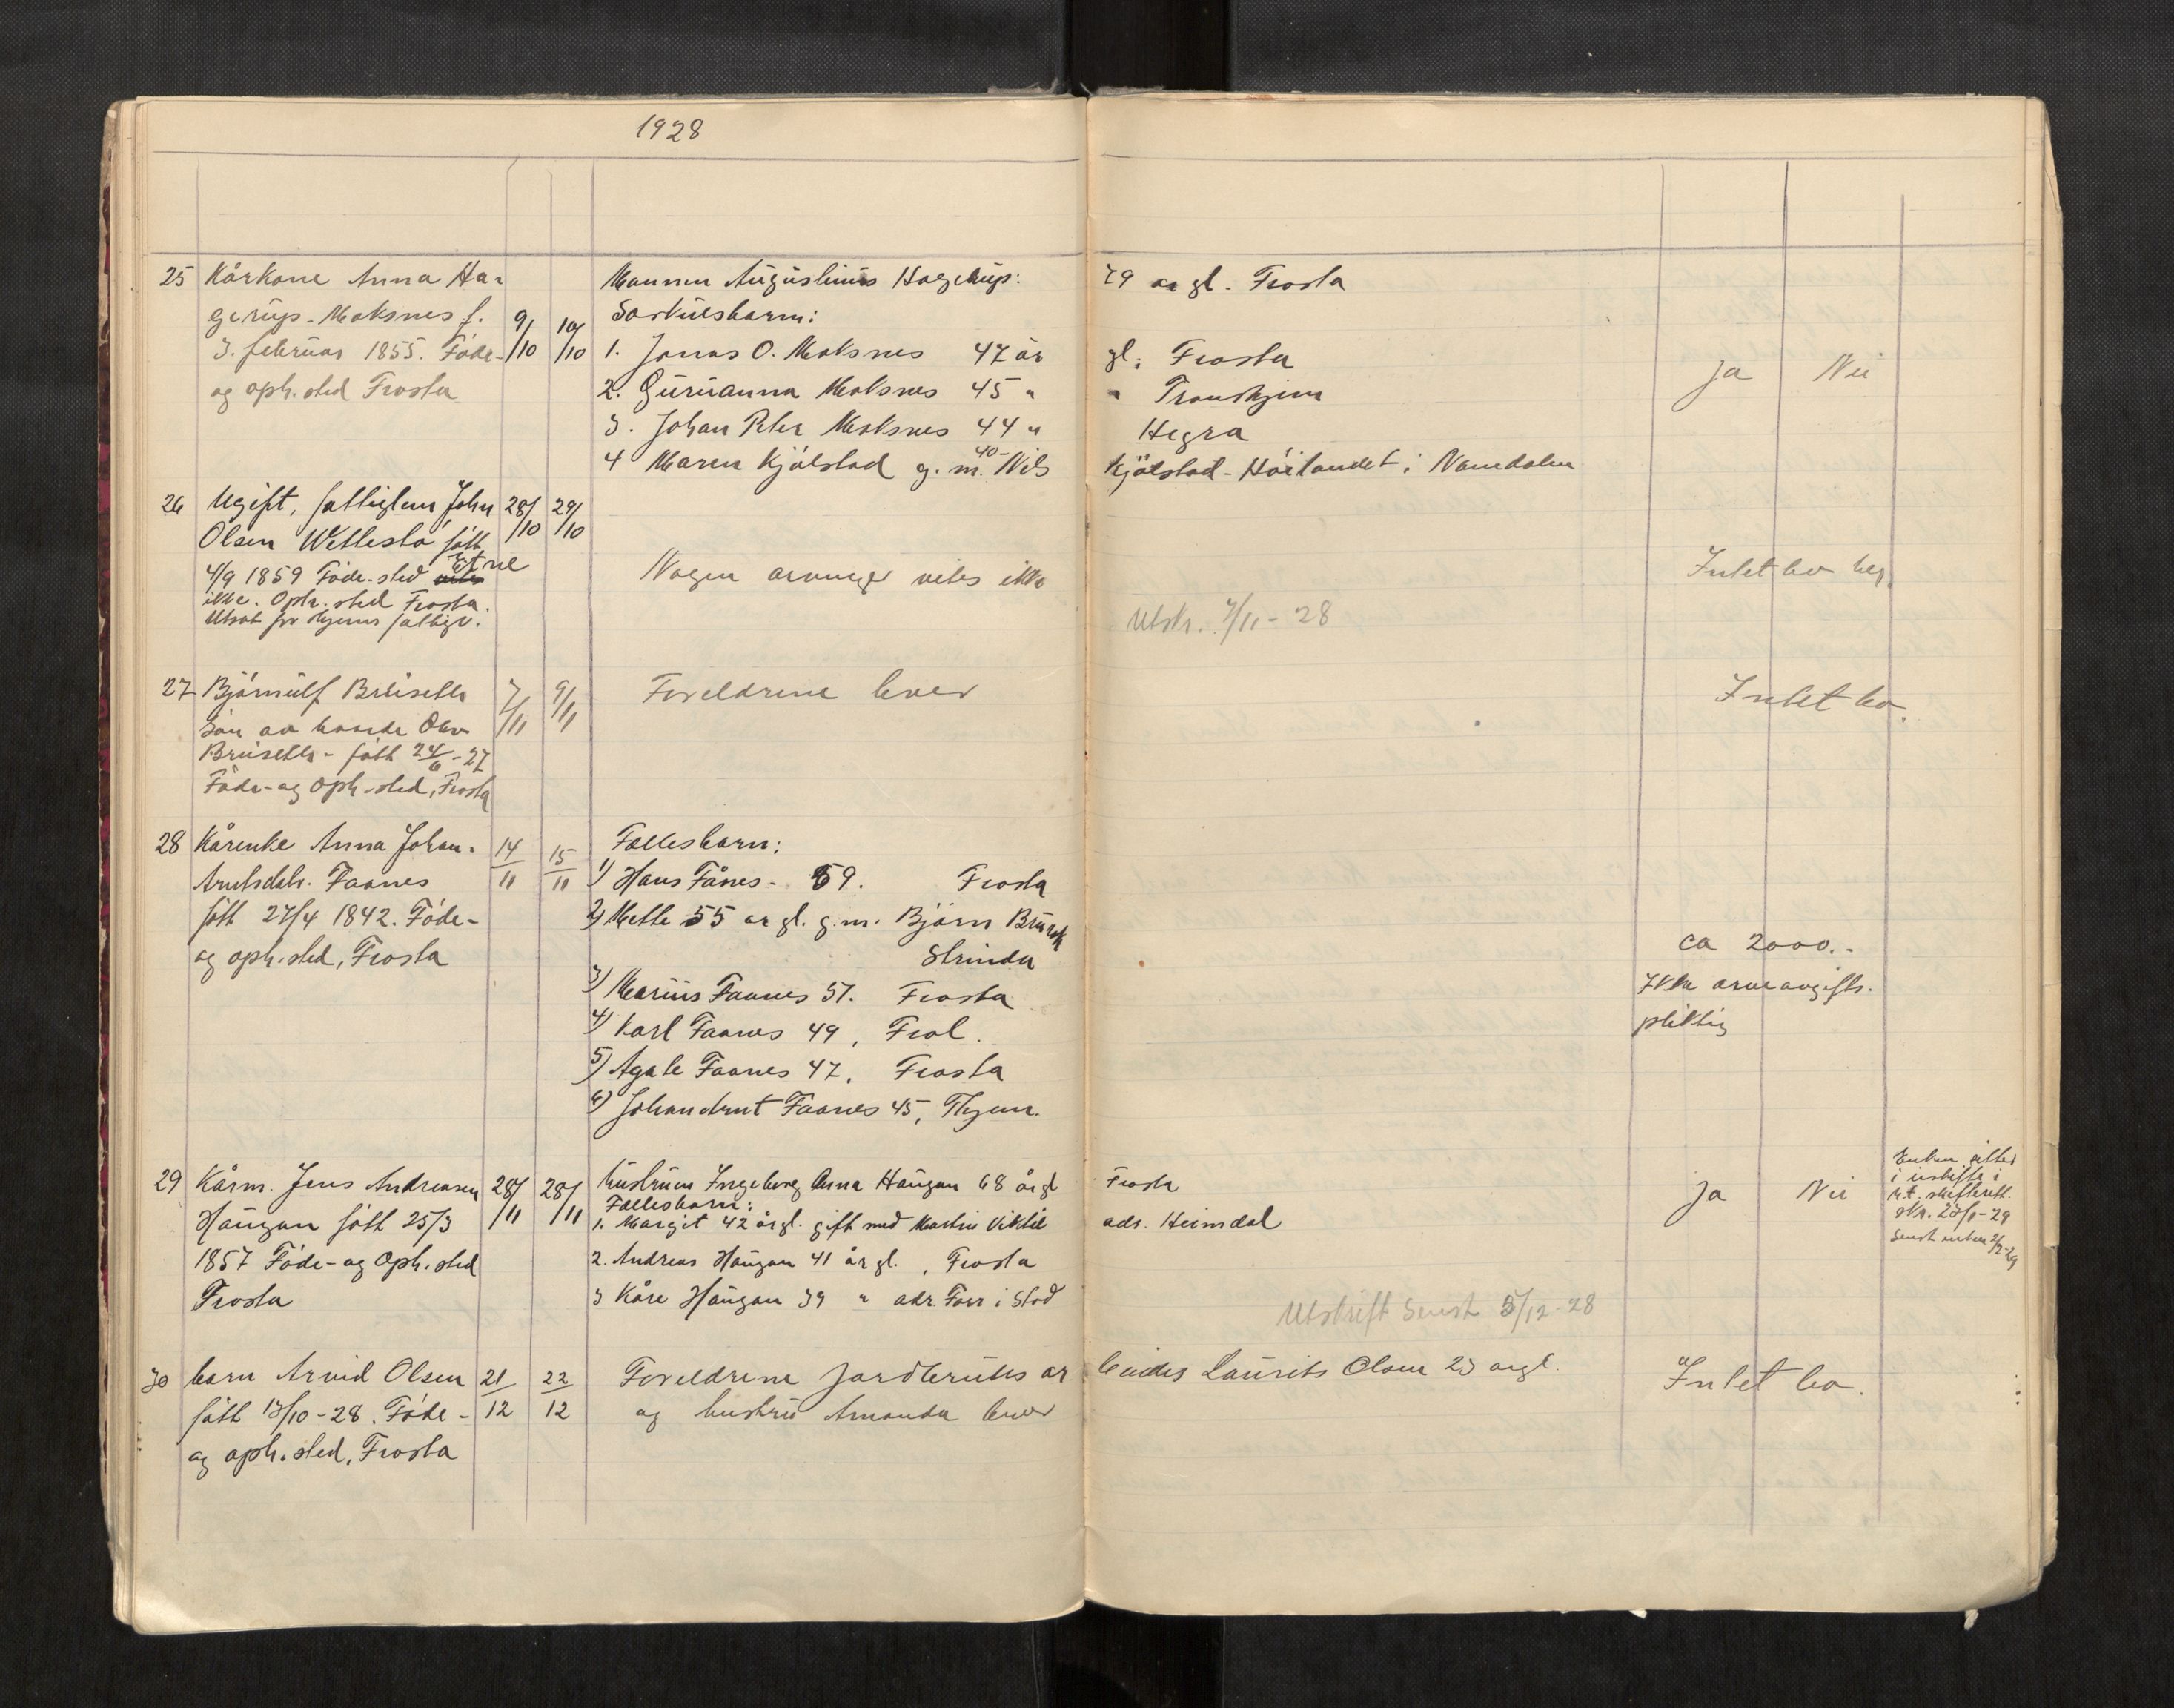 1928
25 Kårkone Anna Ha-
gerup-Moksnes f. 9/10 10/10
3. februar 1855. Føde-
og oph. sted Frosta
Mannen Augustinus Hagerup: 79 år gl. Frosta
Særkulsbarn:
1. Jonas O. Moksnes 47 år gl. Frosta
2. Guruanna Moksnes 45 " " Trondhjem
3. Johan Peter Moksnes 44 " Hegra
4 Maren Kjølstad g. m. 40- Nils Kjølstad - Höilandet i Namdalen
Ja Nei
26 Ugift, fattiglem John 28/10 29/10
Olsen Wettestø født
4/9 1859 Føde-sted Etne
ikke. Oph. sted Frosta.
Utsat for Thjems fattigv.
Nogen arvinger vites ikke
Utskr. 7/11 - 28
Intet bo
27 Bjørnulf Bruseth 7/11 9/11
Søn av bonde Olav
Bruseth - født 24/6 - 27
Føde- og oph.-sted, Frosta
Foreldrene lever
Intet bo.
28 Kårenke Anna Johan- 14/11 15/11
Arntsdatr. Faanes
født 27/4 1842. Føde-
og oph. sted, Frosta
Fællesbarn:
1) Hans Fånes - 59. Frosta
2) Mette 55 år gl. g. m. Bjørn Bruseth
Strinda
3) Marius Faanes 51. Frosta
4) Karl Faanes 49, Frol.
5) Agate Faanes 47, Frosta
6) Johan Arnt Faanes 45, Thjem.
ca 2000.-
Ikke arveavgifts-
pliktig
29 Kårm. Jens Andreasen 28/11 28/11
Haugan født 25/3
1857 Føde- og oph. sted
Frosta
hustruen Ingeborg Anna Haugan 68 år gl Frosta
Fællesbarn:
1. Margit 42 år gl. gift med Martin Viktil adr. Heimdal
2. Andreas Haugan 41 år gl., Frosta
3 Kåre Haugan 39 " adr. Forr i Stod
Utskrift sendt 5/12-28
Ja Nei
Enken sitter
i uskifte i
h.t. skifterett.
skr. 28/1-29
Sendt enken
30 barn Arvid Olsen 21/12 22/12
født 13/10-28. Føde-
og oph. sted, Frosta
Foreldrene jordbruks ar beider Laurits Olsen 23 årgl.
og hustru Amanda lever
Intet bo.